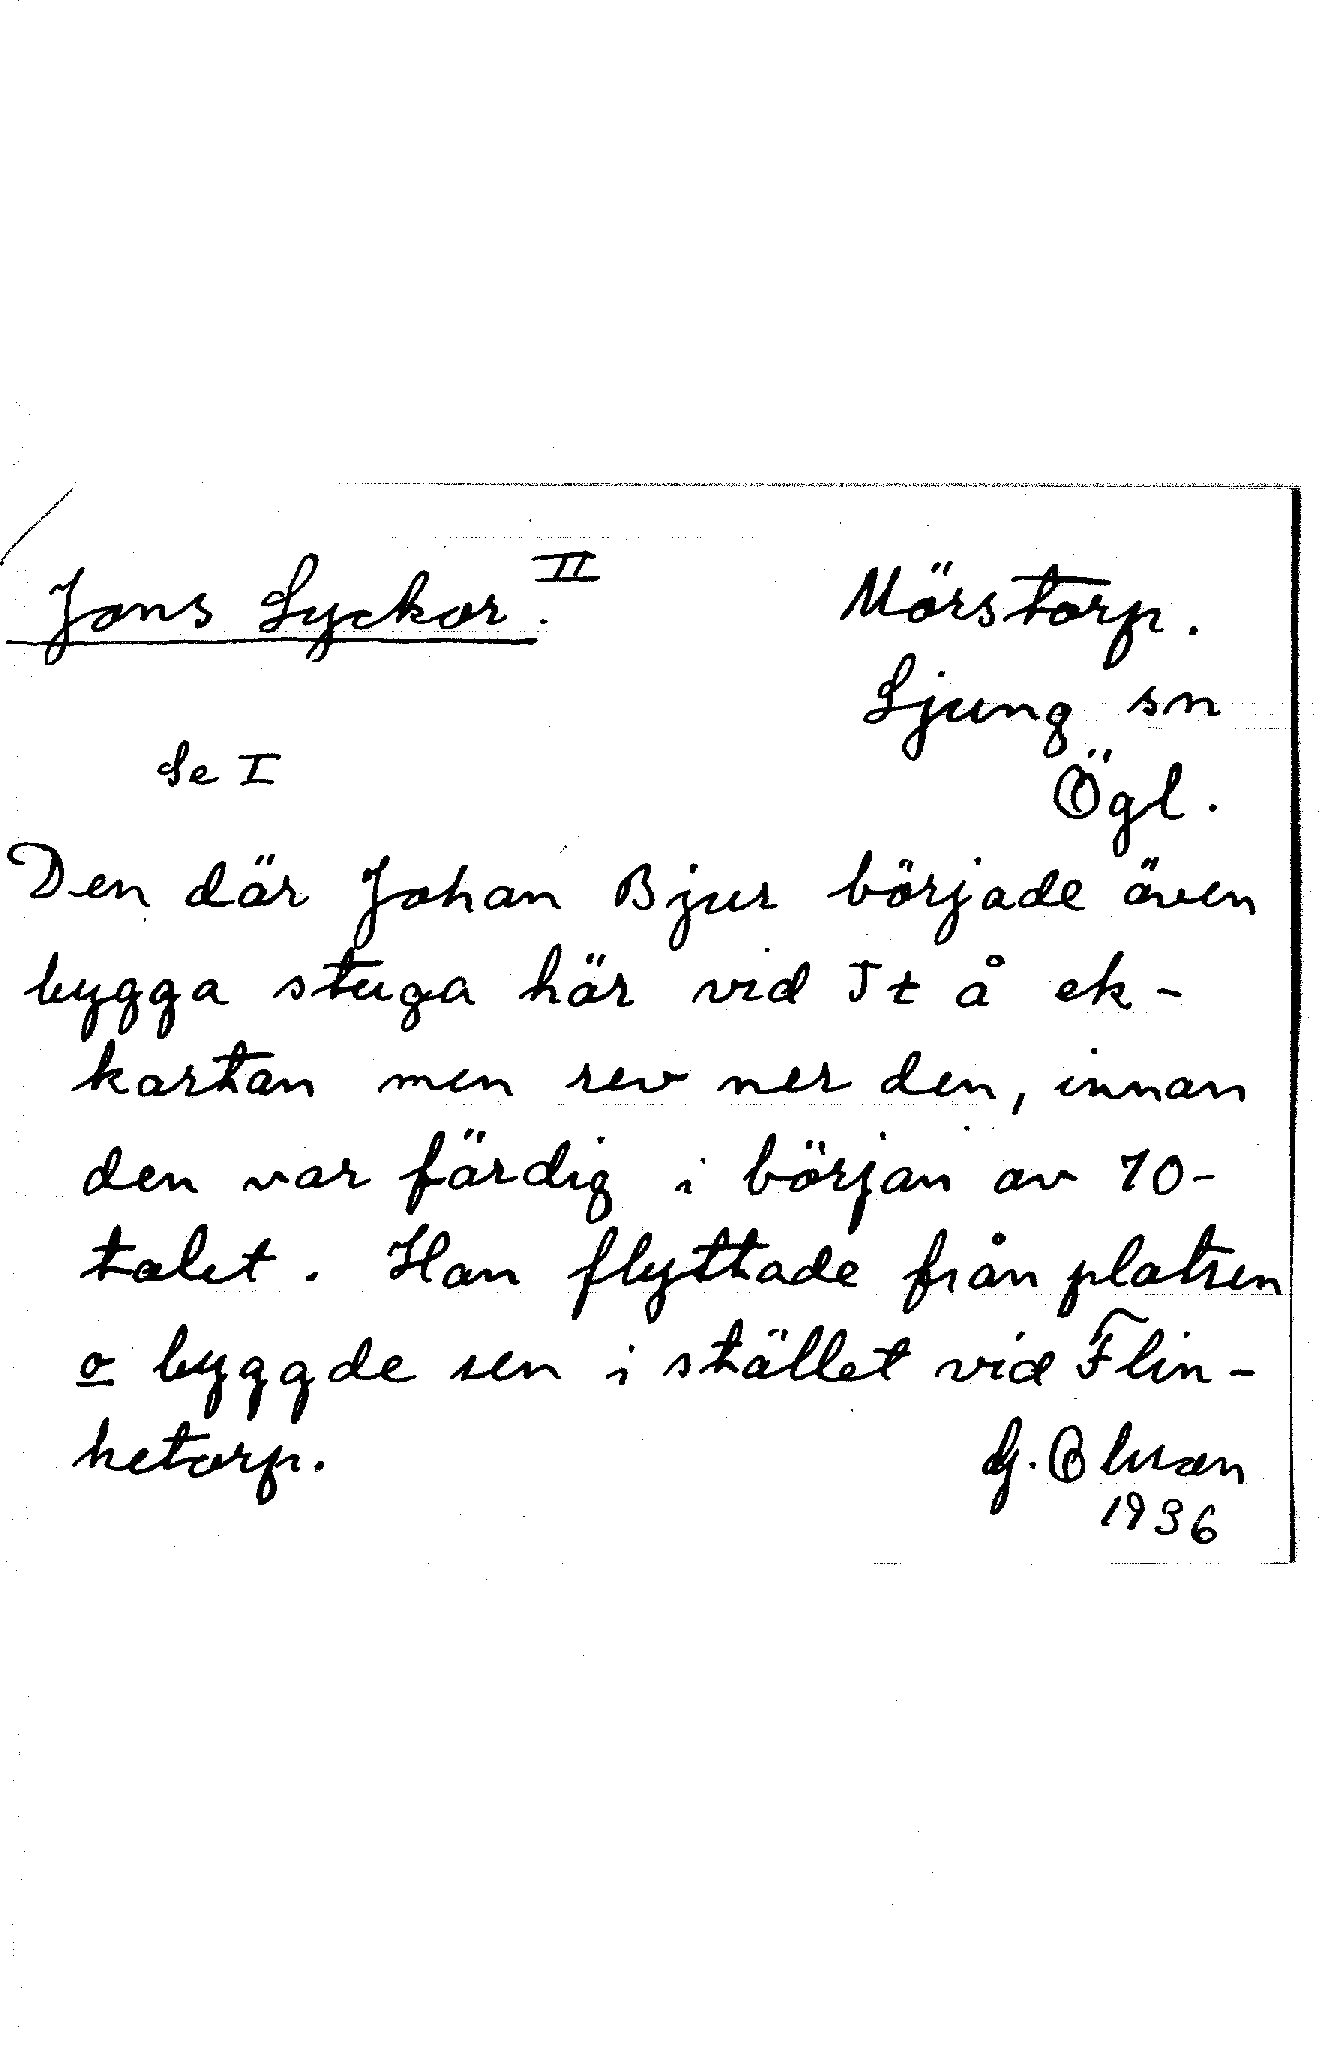 Jons Lyckor. II
Mörstorp.
Ljung sn
Ögl.
Se I
Den där Johan Bjur började även
bygga stuga här vid Jt å ek-
kartan men rev ner den, innan
den var färdig i början av 70-
talet. Han flyttade från platsen
o byggde sen i stället vid Flin-
ketorp.
G. Olsson
1936